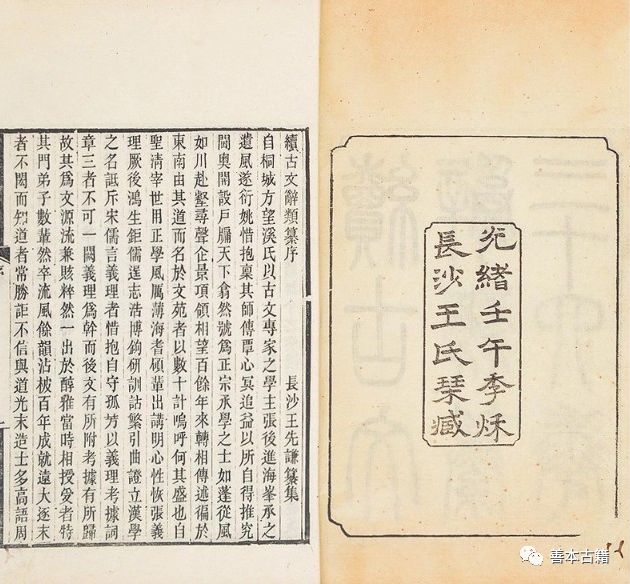 光緒壬午季秌
長沙王氏栞臧
續古文辭類纂序 長沙王先謙纂集
自桐城方望溪氏以古文專家之學主張後進海峯承之
遺風遂衍姚惜抱稟其師傳覃心冥追益以所自得推究
閫奧開設戶牖天下翕然號爲正宗承學之士如蓬從風
如川赴壑尋聲企景項領相望百餘年來轉相傳述徧於
東南由其道而名於文苑者以數十計嗚呼何其盛也自
聖清宰世用正學風厲薄海耆碩輩出講明心性恢張義
理厥後鴻生鉅儒逞志浩博鉤研訓詁繁引曲證立漢學
之名詆斥宋儒言義理者惜抱自守孤芳以義理考據詞
章三者不可一闕義理爲幹而後文有所附考據有所歸
故其爲文源流兼賅粹然一出於醇雅當時相授受者特
其門弟子數輩然卒流風餘韻沾被百年成就遠大逐末
者不閎而知道者常勝詎不信與道光末造士多高語周
序
善本古籍